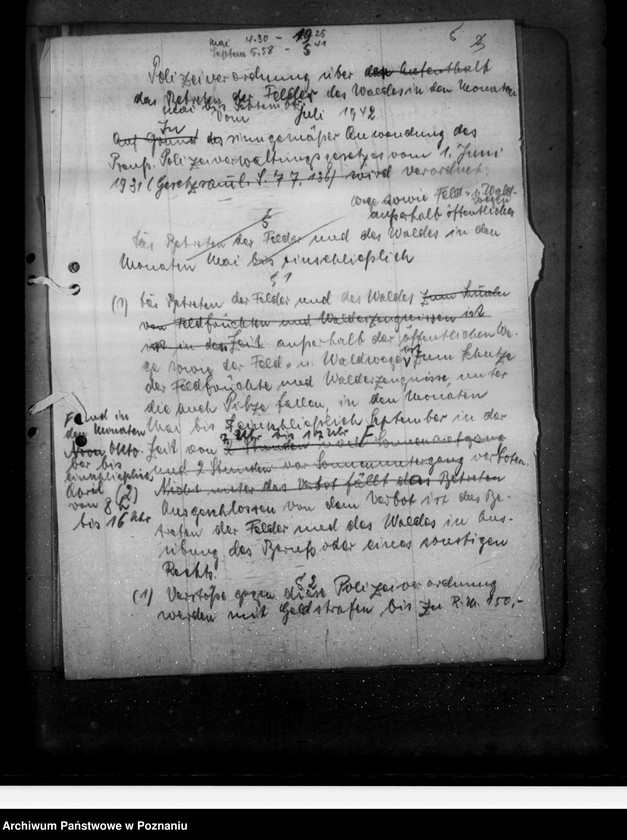 Mai 4.30 - 19 25
Septem 5.58 - 5 41
5
Polizeiverordnung über den Aufenthalt
das Betreten der Felder des Waldes in den Monaten
Mai bis September
Vom Juli 1942
In
Auf Grund des sinngemäßer Anwendung des
Preuß. Polizeiverwaltungsgesetzes vom 1. Juni
1931 (Gesetzsamml. S. 77, 136) wird verordnet:
wege sowie Feld- u. Wald-
wegen
außerhalb öffentlicher
§
Das Betreten der Felder und des Waldes in den
Monaten Mai bis einschließlich
§ 1
(1) Das Betreten der Felder und des Waldes zum
von Feldfrüchten und Walderzeugnissen ist
ist in der Zeit außerhalb der öffentlichen We-
ge sowie der Feld- u. Waldwege ist zum Schutze
der Feldfrüchte und Walderzeugnisse, unter
die auch Pilze fallen, in den Monaten
Mai bis einschließlich September in der
7 Uhr bis 12 Uhr F
Zeit von 2 Stunden nach Sonnenaufgang
und 2 Stunden vor Sonnenuntergang verboten.
F und in
den Monaten
Okto-
ber bis
einschließlich
April
von 8
bis 16 Uhr
(2) Nicht unter das Verbot fällt das Betreten
Ausgeschlossen von dem Verbot ist das Be-
treten der Felder und des Waldes in Aus-
übung des Berufs oder eines sonstigen
Rechts.
§ 2
(1) Verstöße gegen diese Polizeiverordnung
werden mit Geldstrafen bis zu R.M. 150,-
Archiwum Państwowe w Poznaniu